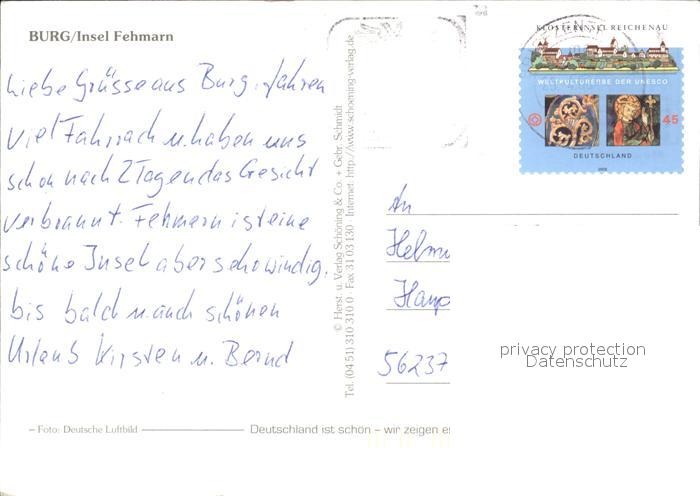 BURG/Insel Fehmarn
Liebe Grüsse aus Burg. fahren
viel Fahrrach u. haben uns
schon nach 2 Tagen das Gesicht
verbrannt. Fehmern ist eine
schöne Insel aber sehr windig.
bis bald u. auch schönen
Urlaub Kirsten u. Bernd
– Foto: Deutsche Luftbild
Deutschland ist schön – wir zeigen es
© Herst. u. Verlag Schöning & Co. + Gebr. Schmidt
Tel. (04 51) 310 310 0 · Fax 31 03 130 · Internet: http://www.schoening-verlag.de
KLOSTERINSEL REICHENAU
WELTKULTURERBE DER UNESCO
45
DEUTSCHLAND
2008
An
Helmu
Haup
56237
privacy protection
Datenschutz